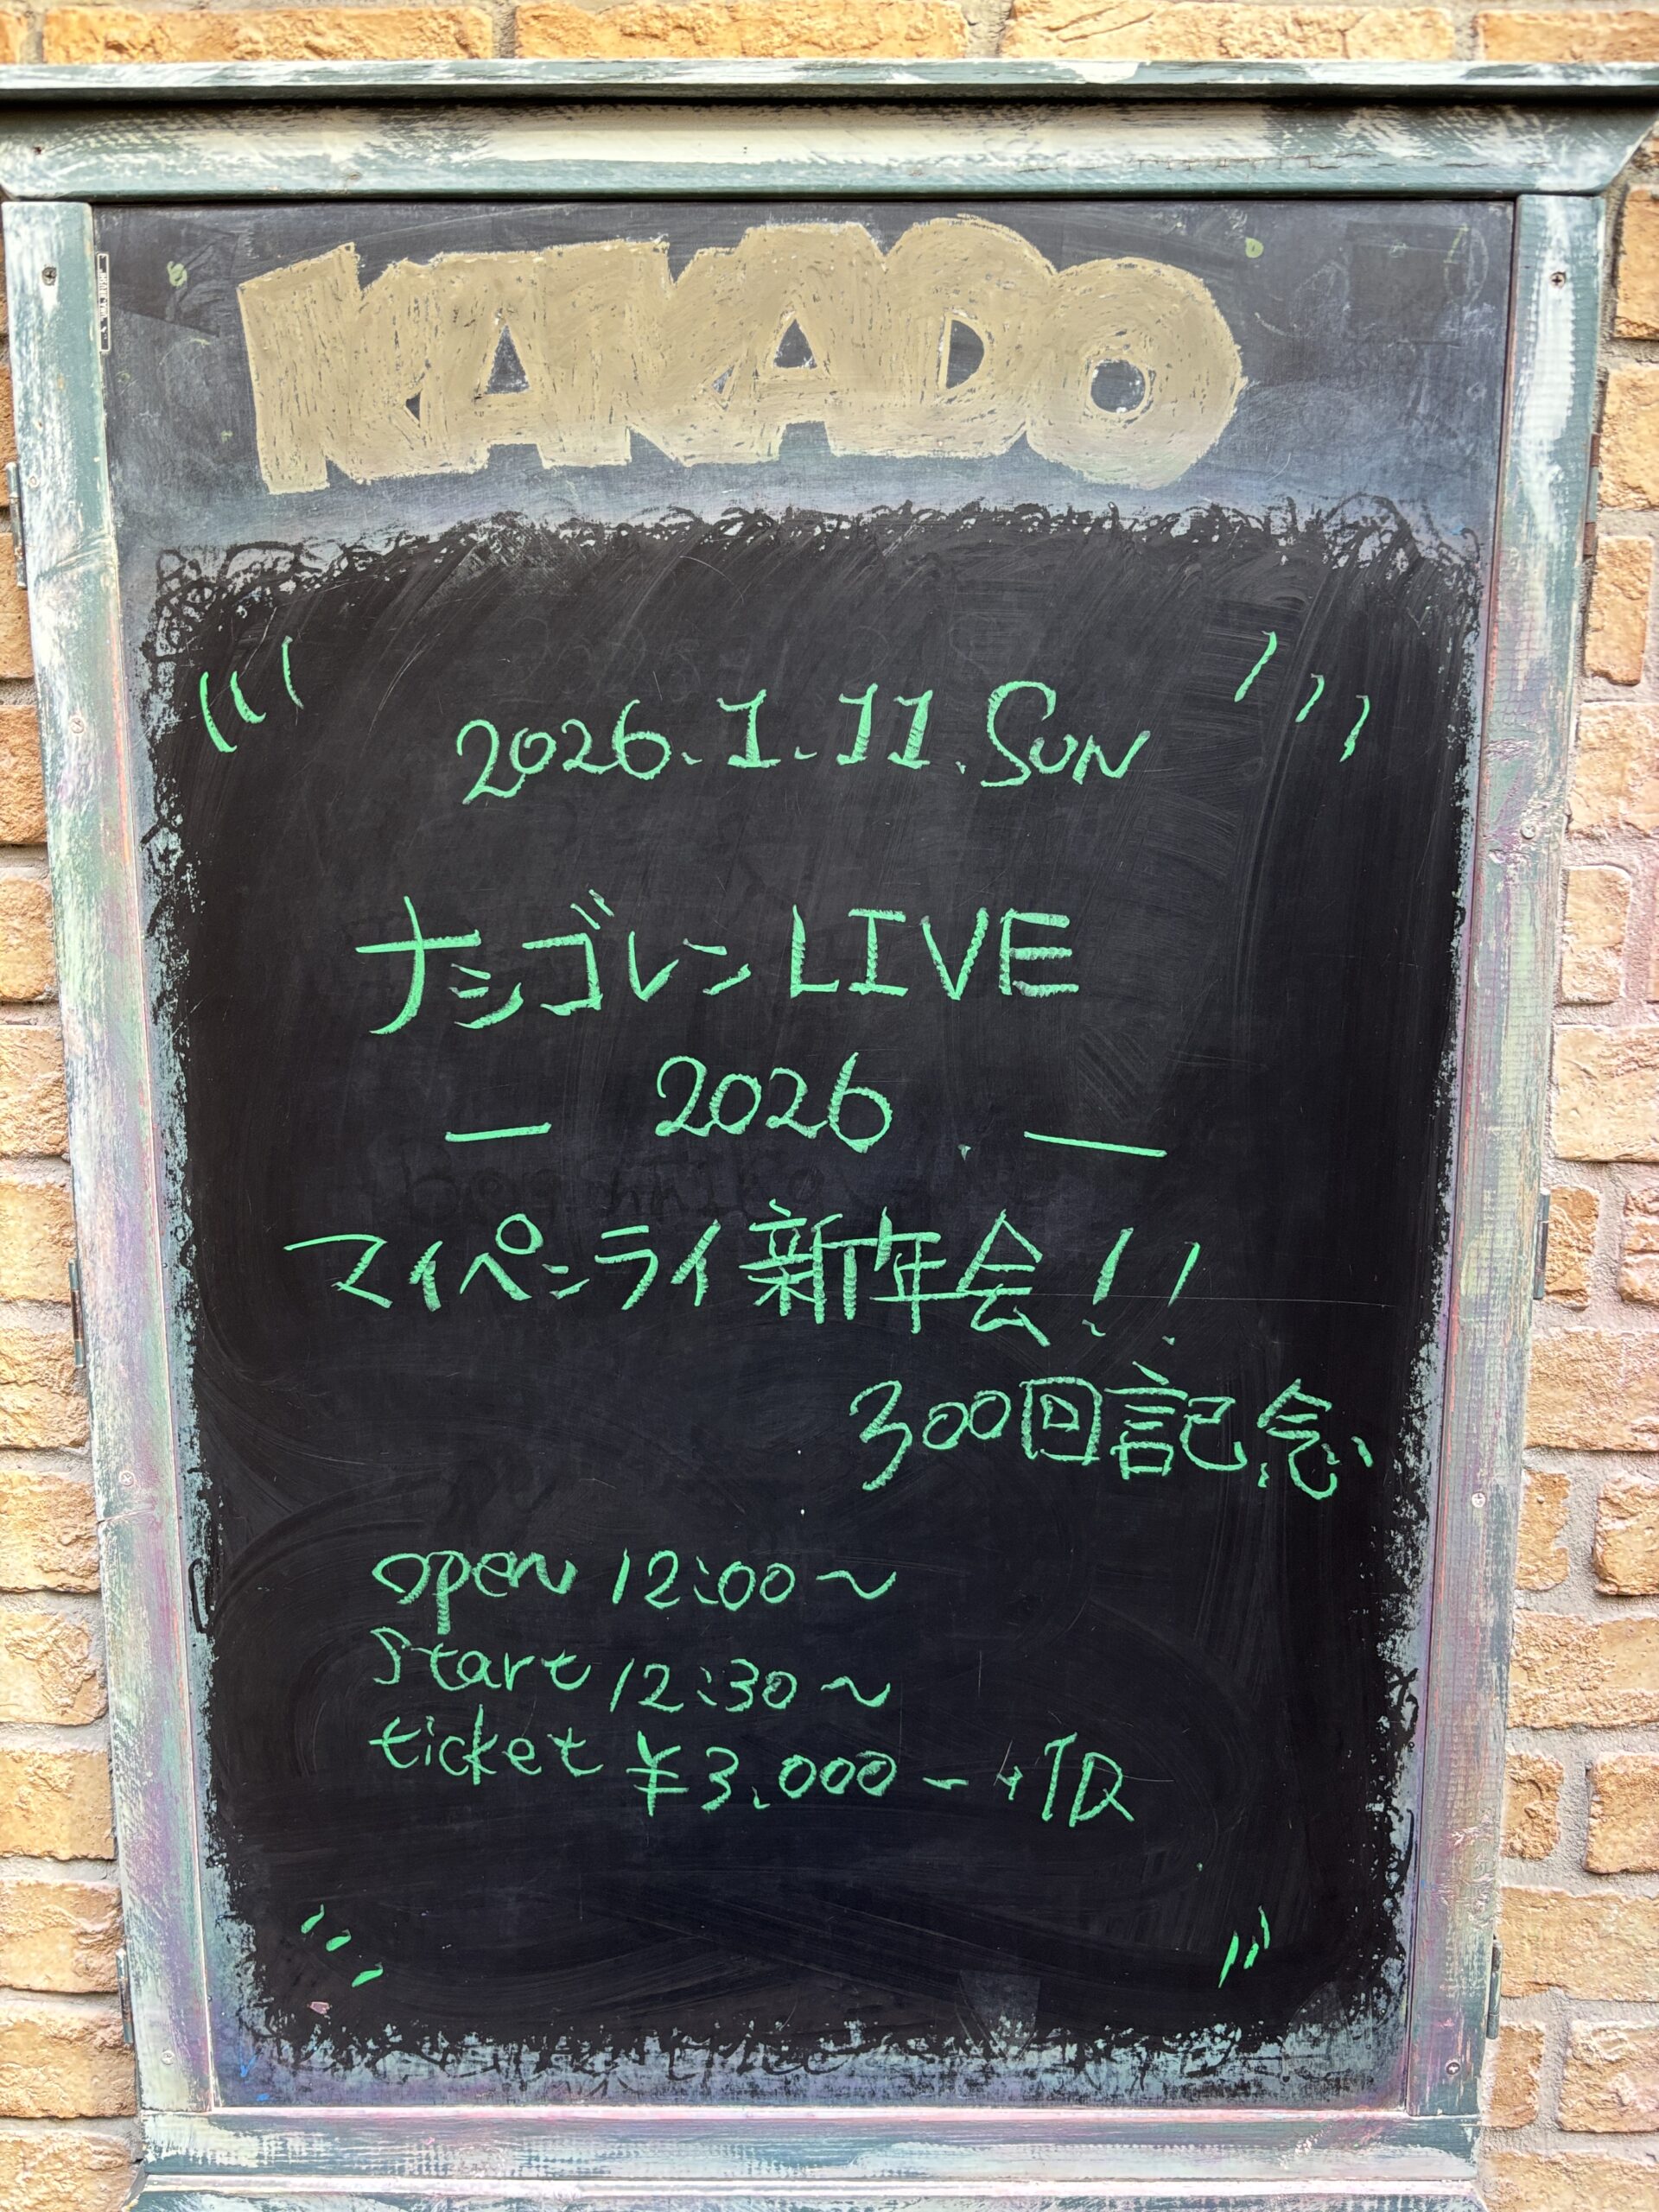 KAKADO
2026.1.11.SUN
ナシゴレンLIVE
— 2026 —
マイペンライ新年会!!
300回記念
open 12:00～
start 12:30～
ticket ¥3,000- +1D